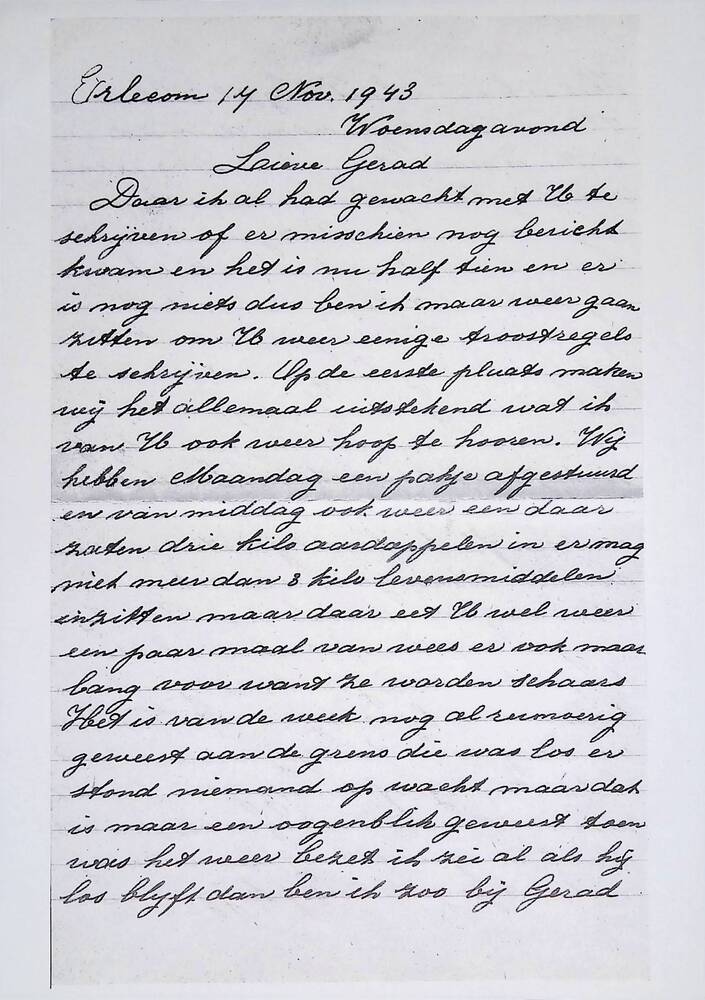 Erlecom 17 Nov. 1943
Woensdagavond
Lieve Gerad
Daar ik al had gewacht met U te
schrijven of er misschien nog bericht
kwam en het is nu half tien en er
is nog niets dus ben ik maar weer gaan
zitten om U weer eenige troostregels
te schrijven. Op de eerste plaats maken
wij het allemaal uitstekend wat ik
van U ook weer hoop te hooren. Wij
hebben Maandag een pakje afgestuurd
en van middag ook weer een daar
zaten drie kilo aardappelen in er mag
niet meer dan 3 kilo levensmiddelen
inzitten maar daar eet U wel weer
een paar maal van wees er ook maar
bang voor want ze worden schaars
Het is van de week nog al rumoerig
geweest aan de grens die was los er
stond niemand op wacht maar dat
is maar een oogenblik geweest toen
was het weer bezet ik zei al als hij
los blyft dan ben ik zoo bij Gerad